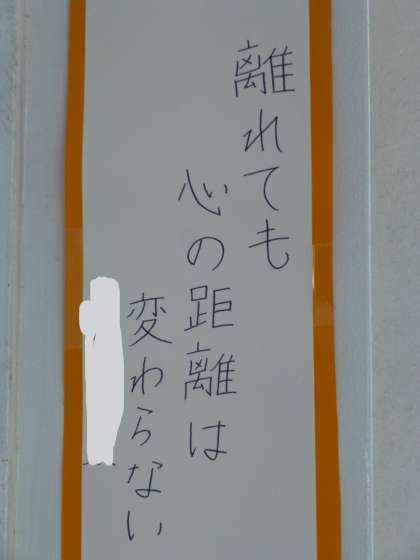 離れても
心の距離は
変わらない